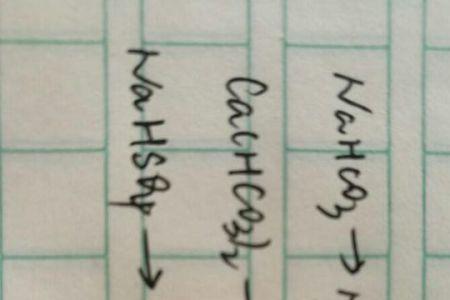 NaHCO₃ → N
Ca(HCO₃)₂ -
NaHSO₄ →